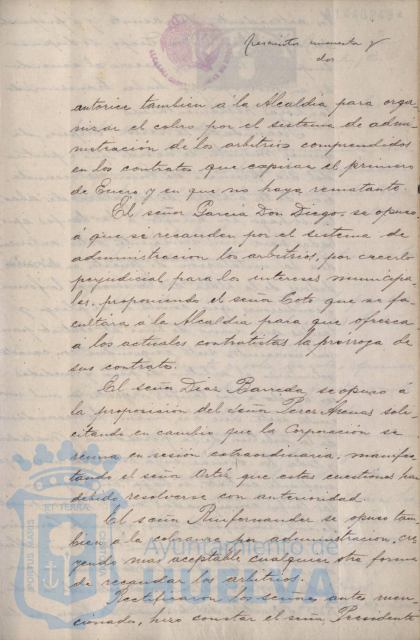 cuenta y
dos
autorice tambien á la Alcaldia para orga-
nizar el cobro por el sistema de admi-
nistración de los arbitrios comprendidos
en los contratos que espiran el primero
de Enero y en que no haya rematante.
El señor Garcia Don Diego, se opuso
á que se recauden por el sistema de
administracion los arbitrios, por creerlo
perjudicial para los intereses municipa-
les, proponiendo el señor Coto que se fa-
cultara á la Alcaldia para que ofrezca
á los actuales contratistas la prorroga de
sus contratos.
El señor Diaz Barreda, se opuso á
la proposición del Señor Perez Arenas soli-
citando en cambio que la Corporación se
reuna en sesión extraordinaria, manifes-
tando el señor Ortiz que estas cuestiones han
debido resolverse con anterioridad.
El señor Ruifernandez se opuso tam-
bien á la cobranza por administración, cre-
yendo mas aceptable cualquier otra forma
de recaudar los arbitrios.
Rectificaron los señores antes men-
cionado, hizo constar el señor Presidente
Ayuntamiento de
HUELVA
PORTUS MARIS
ET TERRÆ
CUSTODIA